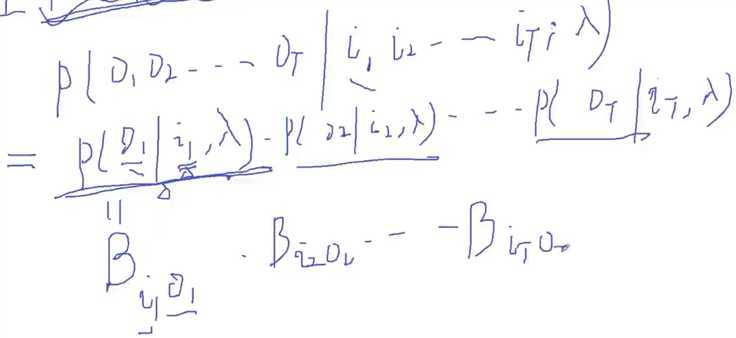 P(O₁O₂---O_T | i₁ i₂ -- i_T, λ)
= P(O₁|i₁,λ)·P(O₂|i₂,λ)---P(O_T|i_T,λ)
||
B_{i₁O₁} · B_{i₂O₂} -- -B_{i_TO_T}